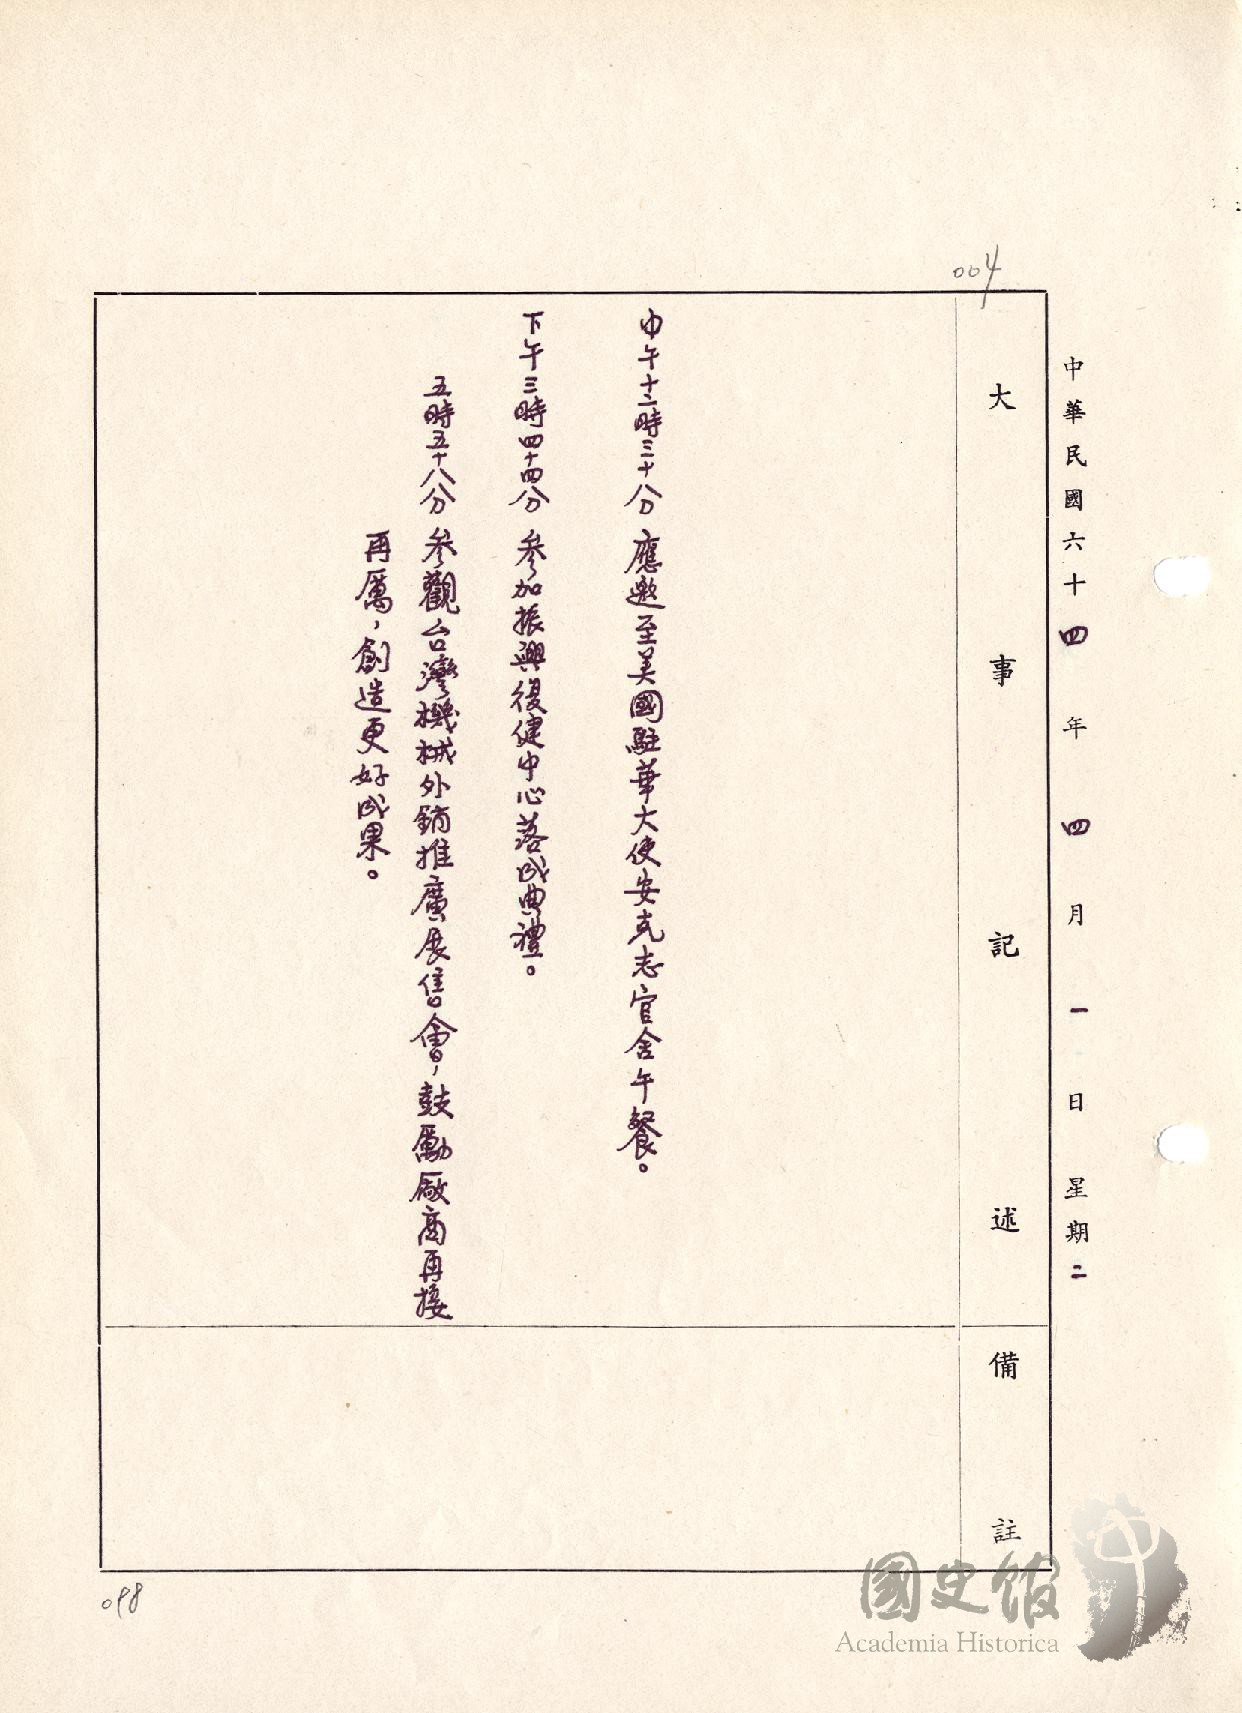 004
中華民國六十四年四月一日星期二
大事記述
備註
中午十二時三十分 應邀至美國駐華大使安克志官舍午餐。
下午三時四十四分 參加振興復健中心落成典禮。
五時五十八分 參觀台灣機械外銷推廣展售會,鼓勵廠商再接
再厲,創造更好成果。
098
國史館
Academia Historica